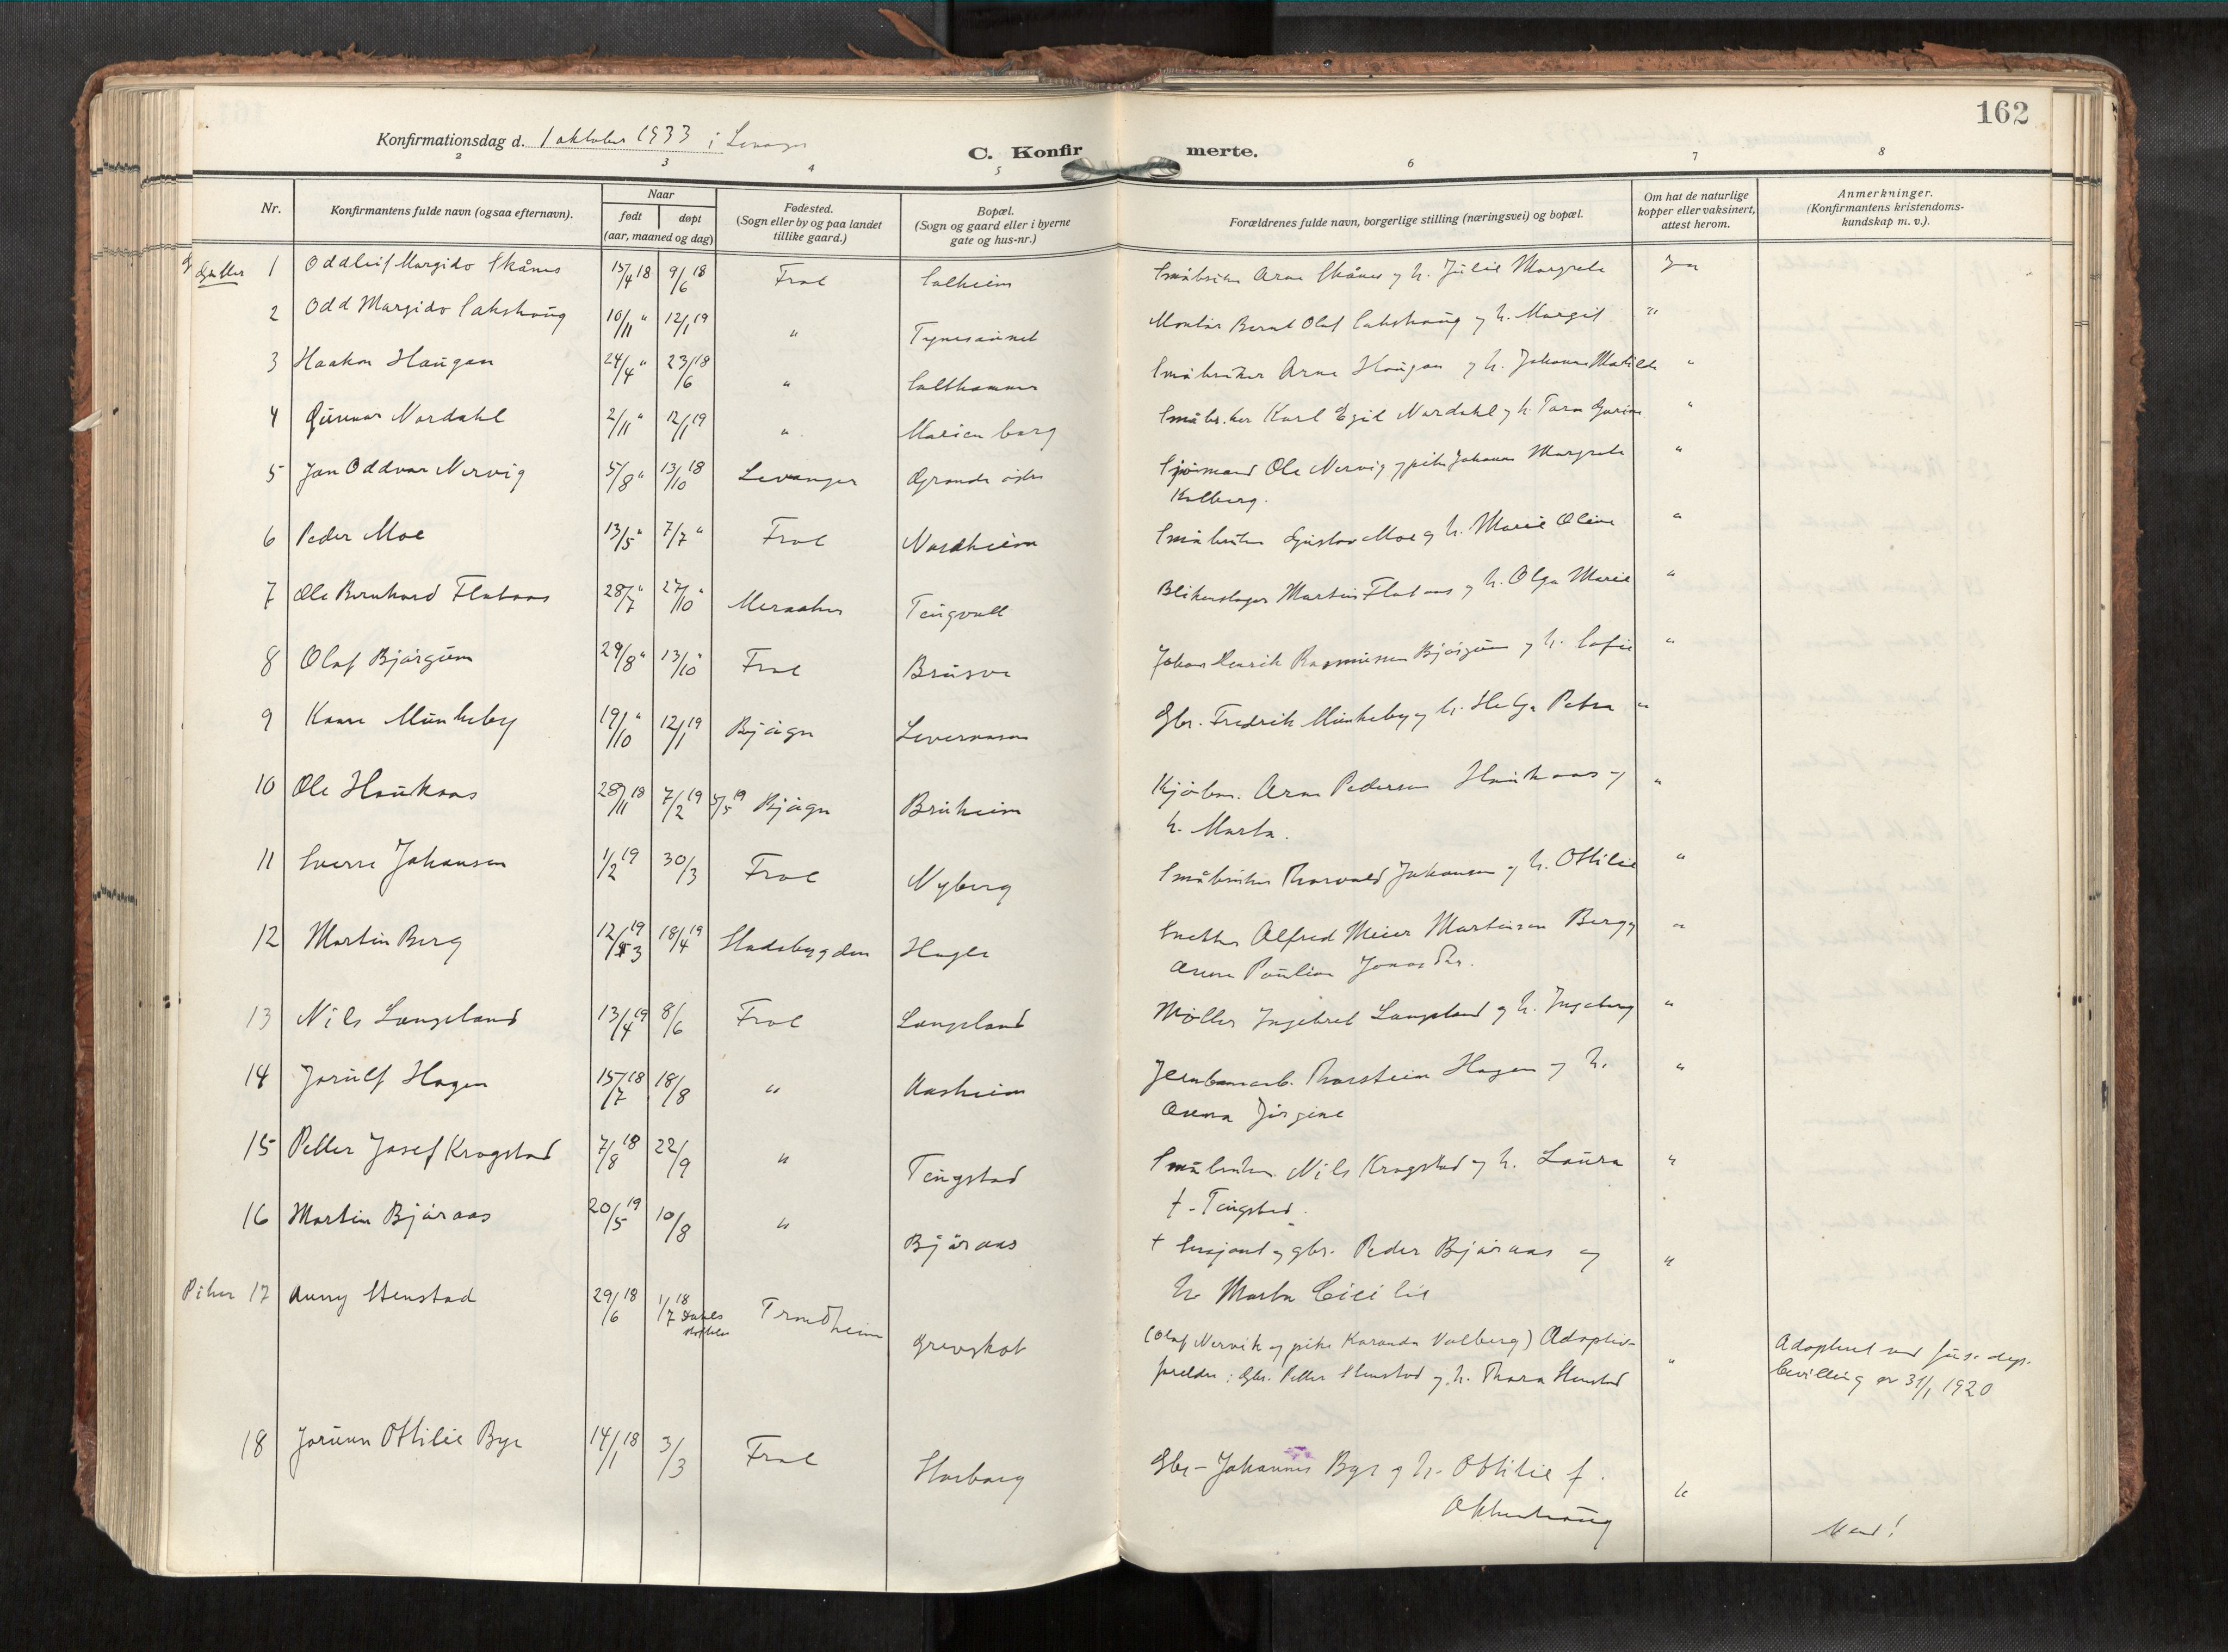 162
Konfirmationsdag d. 1 oktober 1933 i Levanger
C. Konfirmerte.
2 3 4 5 6 7 8
Nr.
Konfirmantens fulde navn (ogsaa efternavn).
Naar
født døpt
(aar, maaned og dag)
Fødested.
(Sogn eller by og paa landet
tillike gaard.)
Bopæl.
(Sogn og gaard eller i byerne
gate og hus-nr.)
Forældrenes fulde navn, borgerlige stilling (næringsvei) og bopæl.
Om hat de naturlige
kopper eller vaksinert,
attest herom.
Anmerkninger.
(Konfirmantens kristendoms-
kundskap m. v.).
Gutter 1 Oddleif Margido Skånes 15/4 18 9/6 18 Frol Salheim Småbruker Arne Skånes og h. Julie Margrete Ja
2 Odd Margido Sakshaug 10/11 " 12/1 19 " Tynesaunet Montør Bernt Olaf Sakshaug og h. Margit "
3 Haakon Haugan 24/4 " 23/6 18 " Salthammer Småbruker Arne Haugan og h. Johanna Matilde "
4 Gunnar Nordahl 2/11 " 12/1 19 " Marienborg Småbr.ker Karl Egil Nordahl og h. Tora Gurine "
5 Jan Oddvar Nervig 5/8 " 13/10 18 Levanger Grande østre Sjømand Ole Nervig og pike Johanna Margrete "
Kolberg.
6 Peder Moe 13/5 " 7/7 " Frol Nordheim Småbruker Gustav Moe og h. Marie Oline "
7 Ole Bernhard Flataas 28/7 " 27/10 " Meraaker Tingvoll Blikenslager Martin Flataas og h. Olga Marie "
8 Olaf Bjørgum 29/8 " 13/10 " Frol Brusve Johan Henrik Rasmussen Bjørgum og h. Sofie "
9 Kaare Munkeby 19/10 " 12/1 19 Bjågn Leveraasen Gbr. Fredrik Munkeby og h. Helga Petra "
10 Ole Haukaas 28/11 18 7/2 19 4/5 19 Bjågn Bruheim Kjøbm. Arne Pedersen Haukaas og "
h. Marta.
11 Sverre Johansen 1/2 19 30/3 Frol Nyberg Småbruker Thorvald Johansen og h. Ottilie "
12 Martin Berg 12/3 19 18/4 19 Stadsbygden Hegle Snekker Alfred Meier Martinsen Berg og "
Anna Pauline Jonasdtr.
13 Nils Langeland 13/4 19 8/6 Frol Langeland Møller Ingebret Langeland og h. Ingeborg "
14 Jorulf Hagen 15/7 18 18/8 " Aasheim Jernbanearb. Thorstein Hagen og h. "
Anna Jørgine
15 Petter Josef Krogstad 7/8 18 22/9 " Tingstad Småbruker Nils Krogstad og h. Laura "
f. Tingstad.
16 Martin Bjøraas 20/5 19 10/8 " Bjøraas † Sersjant og gbr. Peder Bjøraas og "
h. Marta Cicilie
Piker 17 Anny Stenstad 29/6 18 1/7 18 Trondheim Grevskot (Olaf Nervik og pike Karanda Valberg) Adoptiv-
foreldre: Gbr. Petter Stenstad og h. Thora Stenstad "
Adoptert ved jus. dep.
bevilling av 31/1 1920
18 Jorunn Ottilie Bye 14/1 18 3/3 Frol Storborg Gbr. Johannes Bye og h. Ottilie f.
Okkenhaug "
Vend!